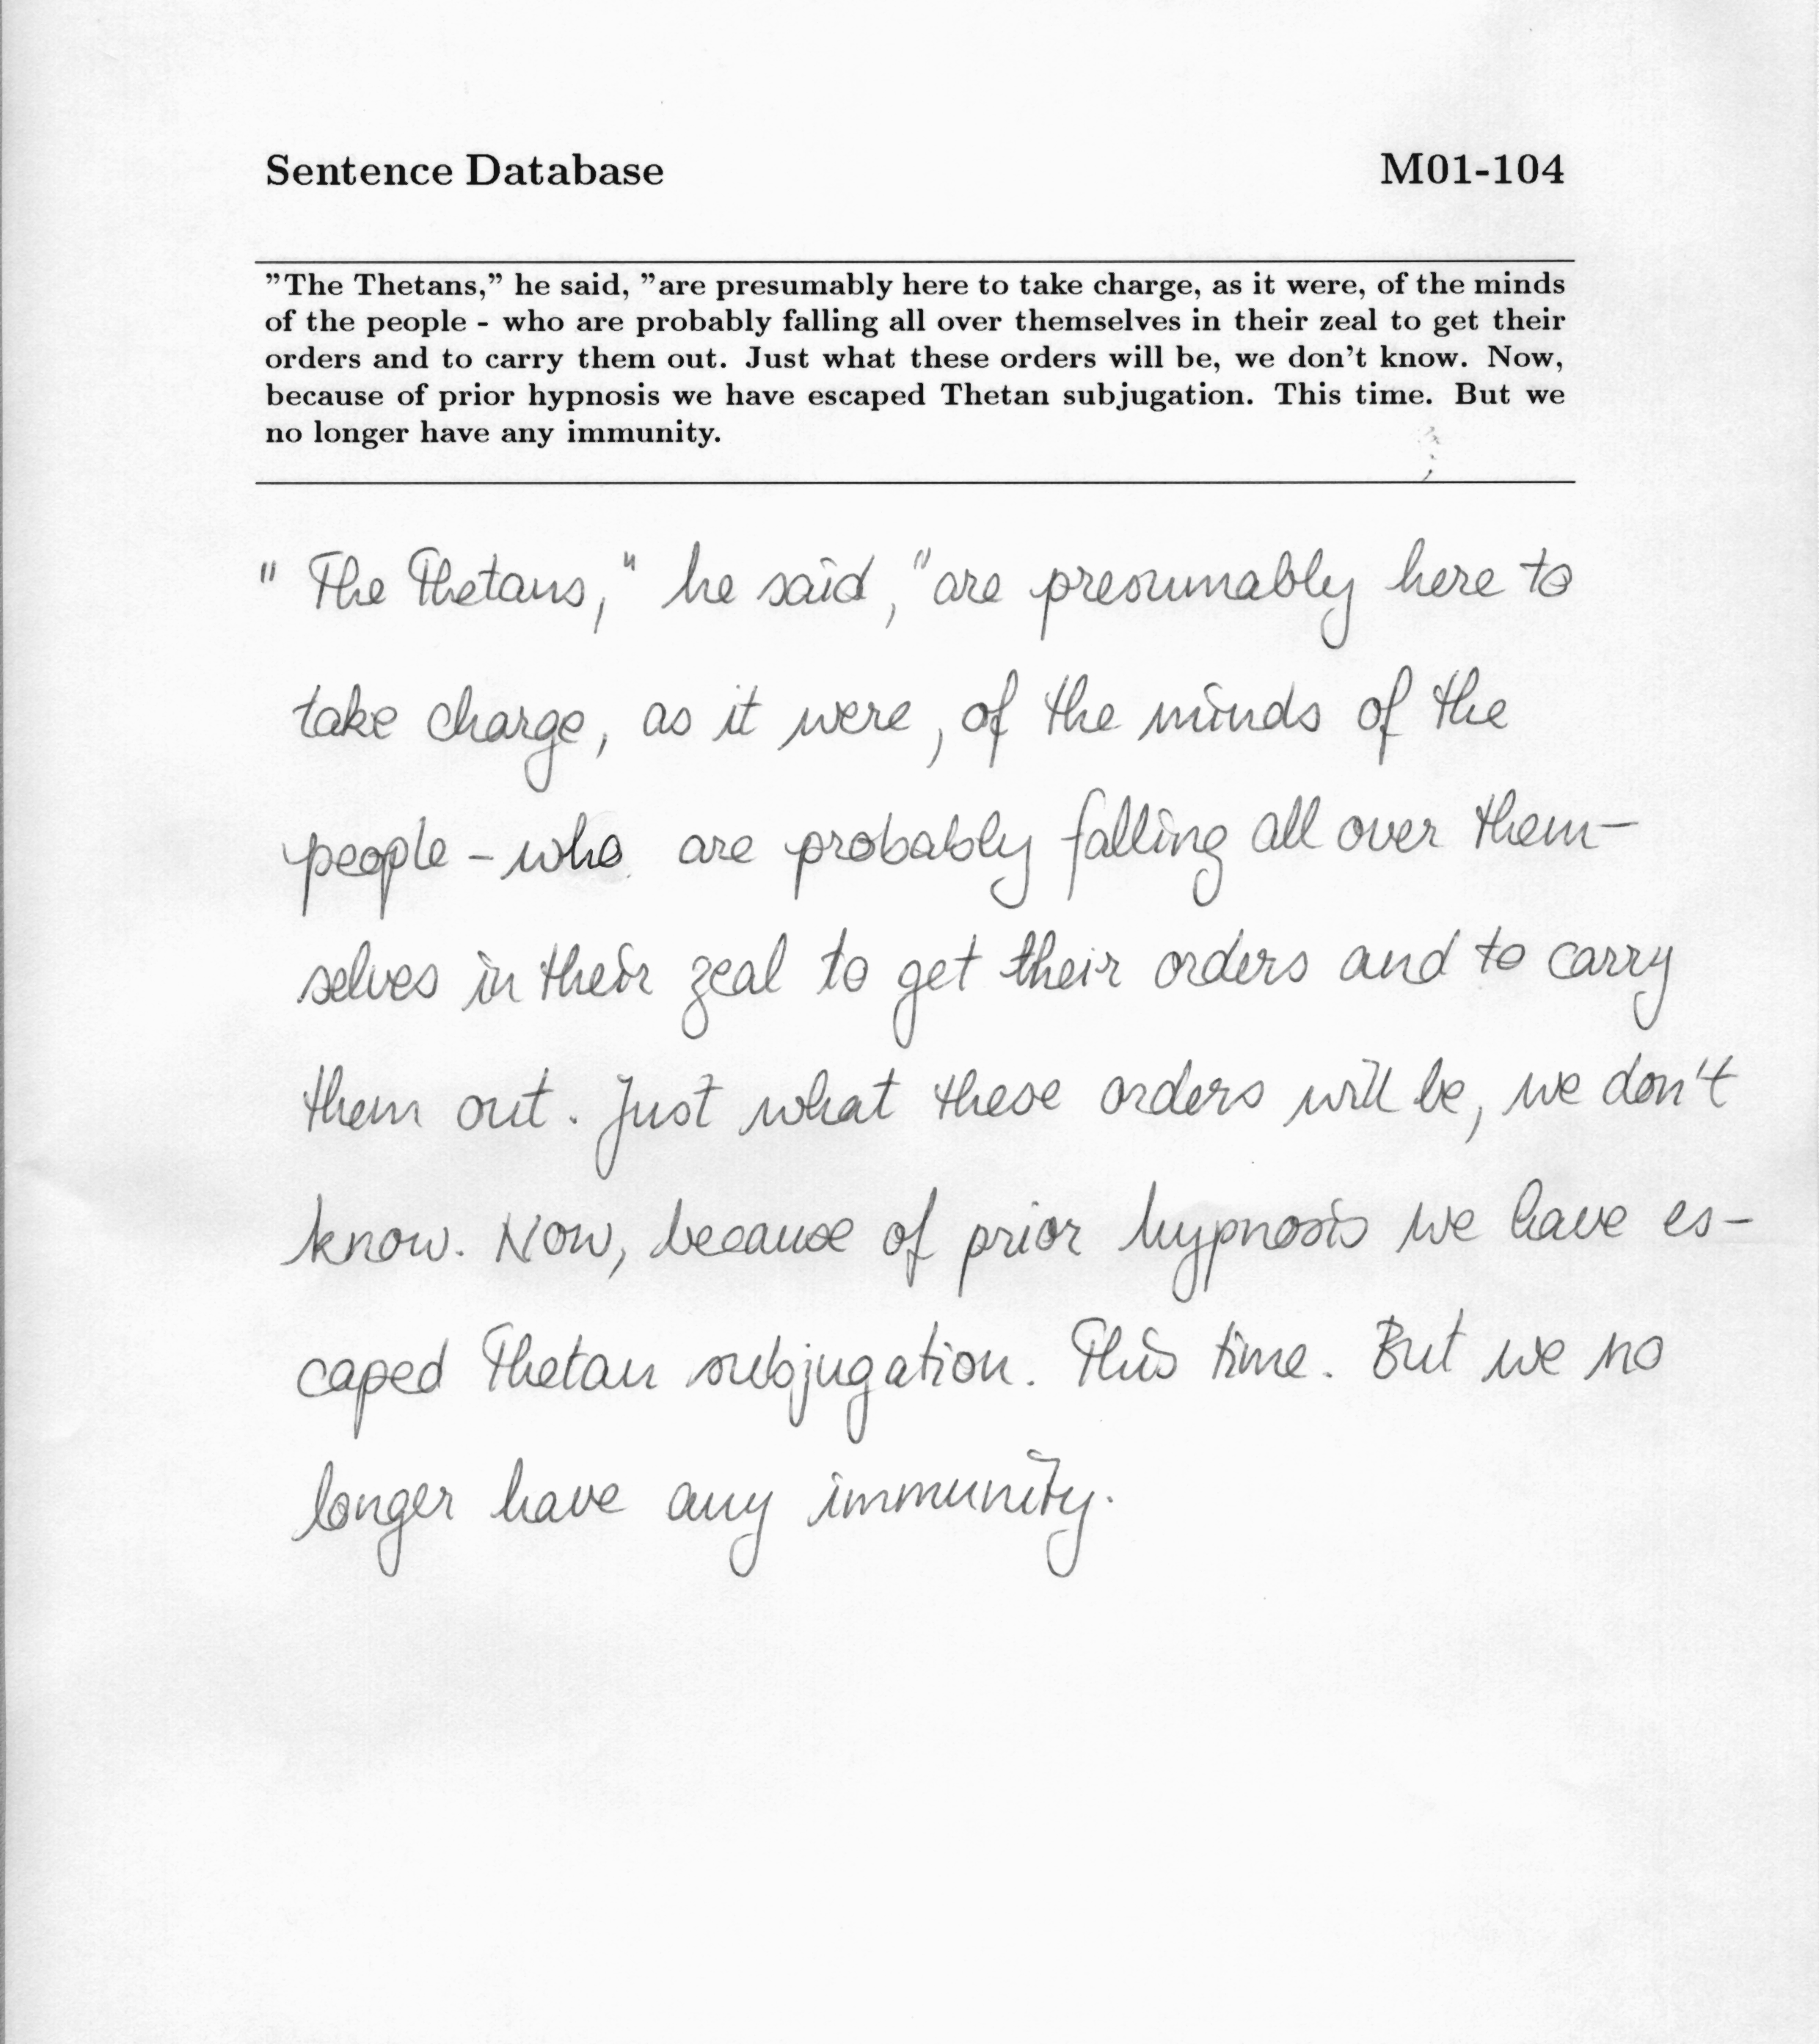 Sentence Database M01-104
"The Thetans," he said, "are presumably here to take charge, as it were, of the minds
of the people - who are probably falling all over themselves in their zeal to get their
orders and to carry them out. Just what these orders will be, we don't know. Now,
because of prior hypnosis we have escaped Thetan subjugation. This time. But we
no longer have any immunity.
" The Thetans," he said, "are presumably here to
take charge, as it were, of the minds of the
people - who are probably falling all over them-
selves in their zeal to get their orders and to carry
them out. Just what these orders will be, we don't
know. Now, because of prior hypnosis we have es-
caped Thetan subjugation. This time. But we no
longer have any immunity.